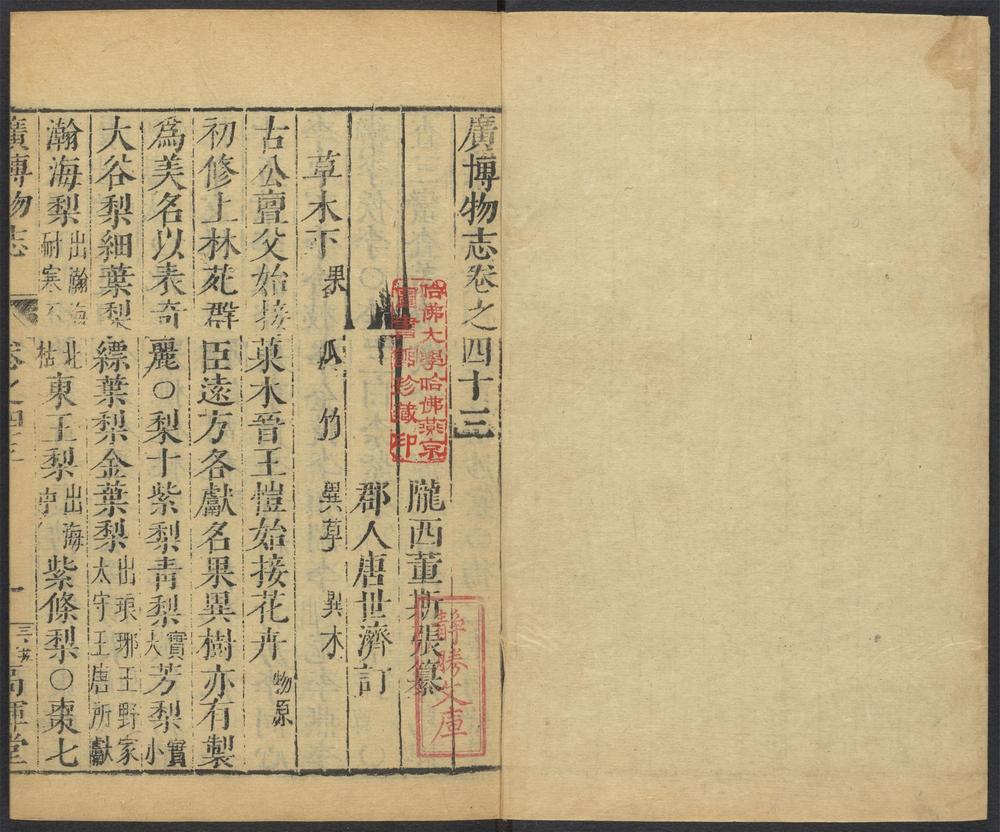 廣博物志卷之四十三
隴西董斯張纂
郡人唐世濟訂
草木下 果 瓜 竹 異草 異木
古公亶父始接菓木晉王愷始接花卉 物原
初修上林苑群臣遠方各獻名果異樹亦有製
爲美名以表奇麗○梨十紫梨青梨 實大 芳梨 實小
大谷梨細葉梨縹葉梨金葉梨 出琅琊王野家太守王唐所獻
瀚海梨 出瀚海北耐寒不枯 東王梨 出海中 紫條梨○棗七
廣博物志 卷之四十三 一 高暉堂
哈佛大學哈佛燕京圖書館珍藏印
靜勝文庫